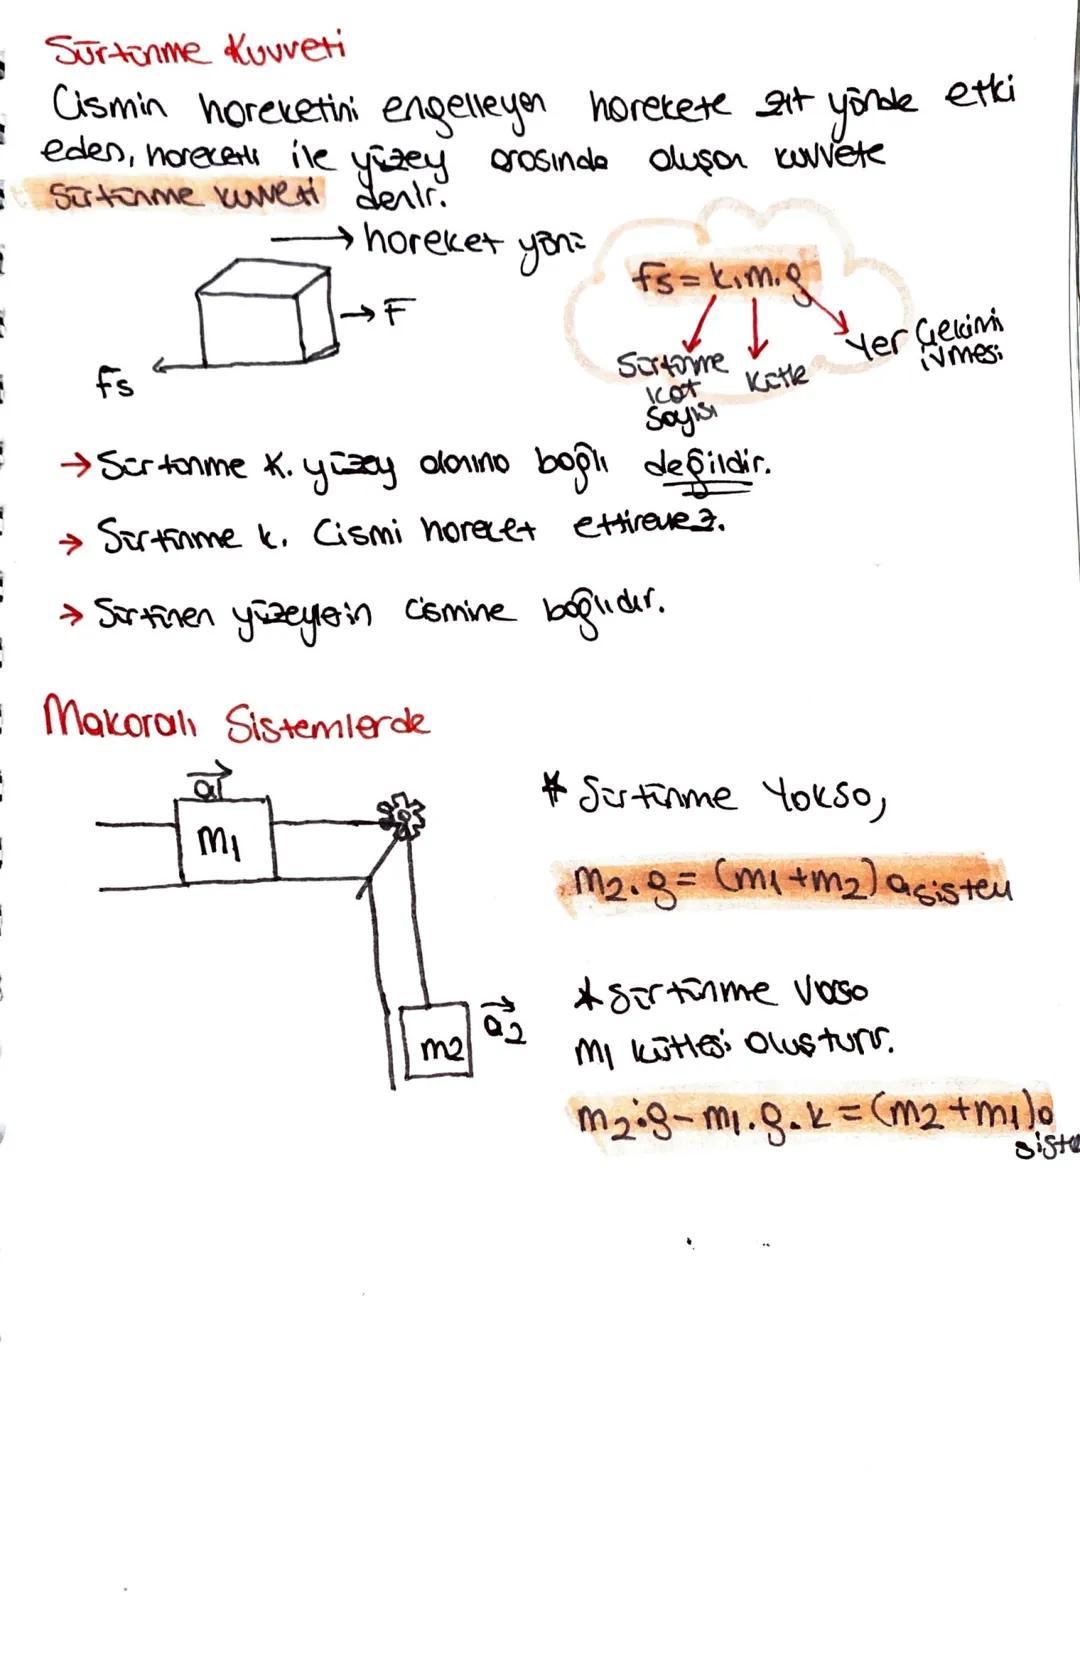 Sürtünme Kuvveti
Cismin hareketini engelleyen harekete zıt yönde etki
eden, hareketli ile yüzey arasında oluşan kuvvete
Sürtünme kuvveti denir.
→ hareket yönü
→ F
fs
fs = k.m.g
Sürtünme
kat
sayısı
Kütle
Yer Çekimi
ivmesi
→ Sürtünme K. yüzey alanına bağlı değildir.
→ Sürtünme k. Cismi hareket ettiremez.
→ Sürtünen yüzeylerin cismine bağlıdır.
Makaralı Sistemlerde
a1
m1
a2
m2
* Sürtünme Yoksa,
m2.g = (m1+m2) a sistem
* Sürtünme Varsa
m1 kütlesi oluşturur.
m2.g - m1.g.k = (m2+m1)a
siste